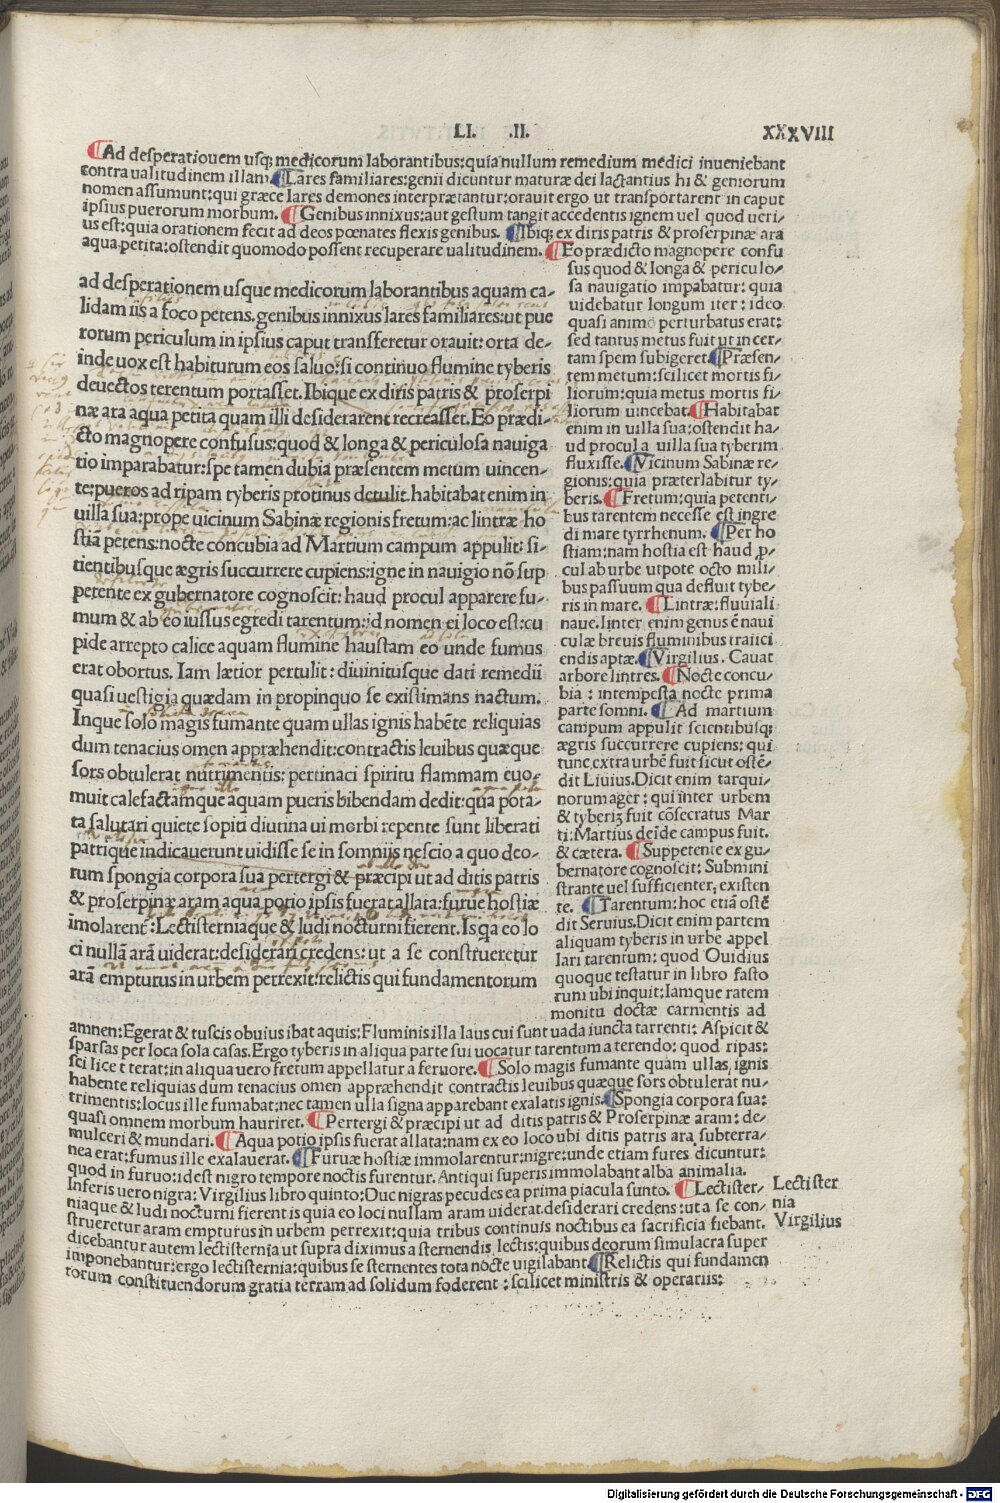 LI. .II. XXXVIII
¶Ad desperationem usq; medicorum laborantibus: quia nullum remedium medici inueniebant
contra ualitudinem illam. ¶Lares familiares: genii dicuntur maturæ dei lactantius hi & geniorum
nomen assumunt: qui græce lares demones interprætantur: orauit ergo ut transportarent in caput
ipsius puerorum morbum. ¶Genibus innixus: aut gestum tangit accedentis ignem uel quod ueri/
us est: quia orationem fecit ad deos pœnates flexis genibus. ¶Ibiq; ex diris patris & proserpinæ ara
aqua petita: ostendit quomodo possent recuperare ualitudinem. ¶Eo prædicto magnopere confu
sus quod & longa & periculo/
sa nauigatio impabatur: quia
uidebatur longum iter: ideo
quasi animo perturbatus erat:
sed tantus metus fuit ut in cer/
tam spem subigeret. ¶Præsen/
tem metum: scilicet mortis fi/
liorum: quia metus mortis fi/
liorum uincebat. ¶Habitabat
enim in uilla sua: ostendit ha/
ud procul a uilla sua tyberim
fluxisse. ¶Vicinum Sabinæ re/
gionis: quia præterlabitur ty/
beris. ¶Fretum: quia petenti/
bus tarentem necesse est ingre
di mare tyrrhenum. ¶Per ho
stiam: nam hostia est haud p̱/
cul ab urbe utpote octo mili/
bus passuum qua defluit tybe/
ris in mare. ¶Lintræ: fluuiali
naue. linter enim genus ē naui
culæ breuis fluminibus traiici
endis aptæ. ¶Virgilius. Cauat
arbore lintres. ¶Nocte concu/
bia: intempesta nocte prima
parte somni. ¶Ad martium
campum appulit scientibusq;
ægris succurrere cupiens: qui
tunc extra urbē fuit sicut ostē/
dit Liuius. Dicit enim tarqui/
norum ager: qui inter urbem
& tyberiȝ fuit cōsecratus Mar
ti: Martius deīde campus fuit.
& cætera. ¶Suppetente ex gu/
bernatore cognoscit: Submini
strante uel sufficienter, existen
te. ¶Tarentum: hoc etiā ostē
dit Seruius. Dicit enim partem
aliquam tyberis in urbe appel
lari tarentum: quod Ouidius
quoque testatur in libro fasto
rum ubi inquit: Iamque ratem
monitu doctæ carmentis ad
ad desperationem usque medicorum laborantibus aquam ca/
lidam iis a foco petens. genibus innixus lares familiares: ut pue
rorum periculum in ipsius caput transferetur orauit: orta de/
inde uox est habiturum eos saluo: si continuo flumine tyberis
deuectos terentum portasset. Ibique ex diris patris & proserpi
næ ara aqua petita quam illi desiderarent recreasset. Eo prædi/
cto magnopere confusus: quod & longa & periculosa nauiga
tio imparabatur: spe tamen dubia præsentem metum uincen/
te: pueros ad ripam tyberis protinus detulit. habitabat enim in
uilla sua: prope uicinum Sabinæ regionis fretum: ac lintræ ho
stiā petens: nocte concubia ad Martium campum appulit: si/
tientibusque ægris succurrere cupiens: igne in nauigio nō sup
petente ex gubernatore cognoscit: haud procul apparere fu/
mum & ab eo iussus egredi tarentum: id nomen ei loco est: cu
pide arrepto calice aquam flumine haustam eo unde fumus
erat obortus. Iam lætior pertulit: diuinitusque dati remedii
quasi uestigia quædam in propinquo se existimans nactum.
Inque solo magis fumante quam ullas ignis habēte reliquias
dum tenacius omen appræhendit: contractis leuibus quæque
sors obtulerat nutrimentis: pertinaci spiritu flammam euo/
muit calefactamque aquam pueris bibendam dedit: qua pota/
ta salutari quiete sopiti diutina ui morbi repente sunt liberati
patrique indicauerunt uidisse se in somniis nescio a quo deo/
rum spongia corpora sua pertergi & præcipi ut ad ditis patris
& proserpinæ aram aqua potio ipsis fuerat allata: furuæ hostiæ
īmolarent: Lectisterniaque & ludi nocturni fierent. Is qa eo lo
ci nullā arā uiderat: desiderari credens: ut a se construeretur
arā empturus in urbem perrexit: relictis qui fundamentorum
amnen: Egerat & tuscis obuius ibat aquis: Fluminis illa laus cui sunt uada iuncta tarrenti: Aspicit &
sparsas per loca sola casas. Ergo tyberis in aliqua parte sui uocatur tarentum a terendo: quod ripas:
sci lice t terat: in aliqua uero fretum appellatur a feruore. ¶Solo magis fumante quam ullas, ignis
habente reliquias dum tenacius omen appræhendit contractis leuibus quæque sors obtulerat nu/
trimentis: locus ille fumabat: nec tamen ulla signa apparebant exalatis ignis. ¶Spongia corpora sua:
quasi omnem morbum hauriret. ¶Pertergi & præcipi ut ad ditis patris & Proserpinæ aram: de/
mulceri & mundari. ¶Aqua potio ipsis fuerat allata: nam ex eo loco ubi ditis patris ara subterra/
nea erat: fumus ille exalauerat. ¶Furuæ hostiæ immolarentur: nigre: unde etiam fures dicuntur:
quod in furuo: idest nigro tempore noctis furentur. Antiqui superis immolabant alba animalia.
Inferis uero nigra: Virgilius libro quinto: Duc nigras pecudes ea prima piacula sunto. ¶Lectister/
niaque & ludi nocturni fierent is quia eo loci nullam aram uiderat. desiderari credens: ut a se con/
strueretur aram empturus in urbem perrexit: quia tribus continuis noctibus ea sacrificia fiebant.
dicebantur autem lectisternia ut supra diximus a sternendis lectis: quibus deorum simulacra super
imponebantur: ergo lectisternia: quibus se sternentes tota nocte uigilabant. ¶Relictis qui fundamen
torum constituendorum gratia terram ad solidum foderent: scilicet ministris & operariis:
Lectister
nia
Virgilius
Digitalisierung gefördert durch die Deutsche Forschungsgemeinschaft - DFG